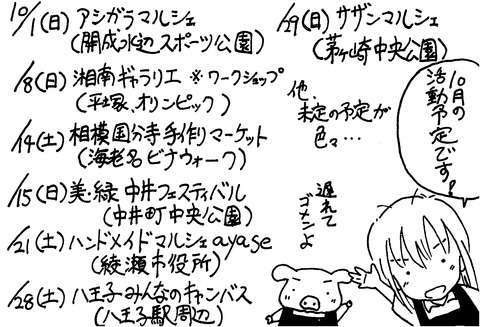 10/1(日) アシガラマルシェ
(開成水辺スポーツ公園)
/8(日) 湘南ギャラリエ ※ワークショップ
(平塚、オリンピック)
/14(土) 相模国分寺手作りマーケット
(海老名ビナウォーク)
/15(日) 美・緑 中井フェスティバル
(中井町中央公園)
/21(土) ハンドメイドマルシェayase
(綾瀬市役所)
/28(土) 八王子みんなのキャンバス
(八王子駅周辺)
/29(日) サザンマルシェ
(茅ヶ崎中央公園)
他、
未定の予定が
色々…
10月の
活動予定です!
遅れて
ゴメンよ